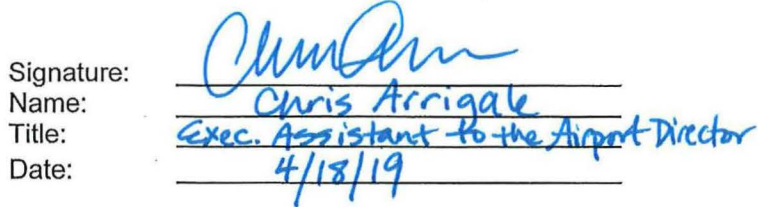 Signature:
Name: Chris Arrigale
Title: Exec. Assistant to the Airport Director
Date: 4/18/19